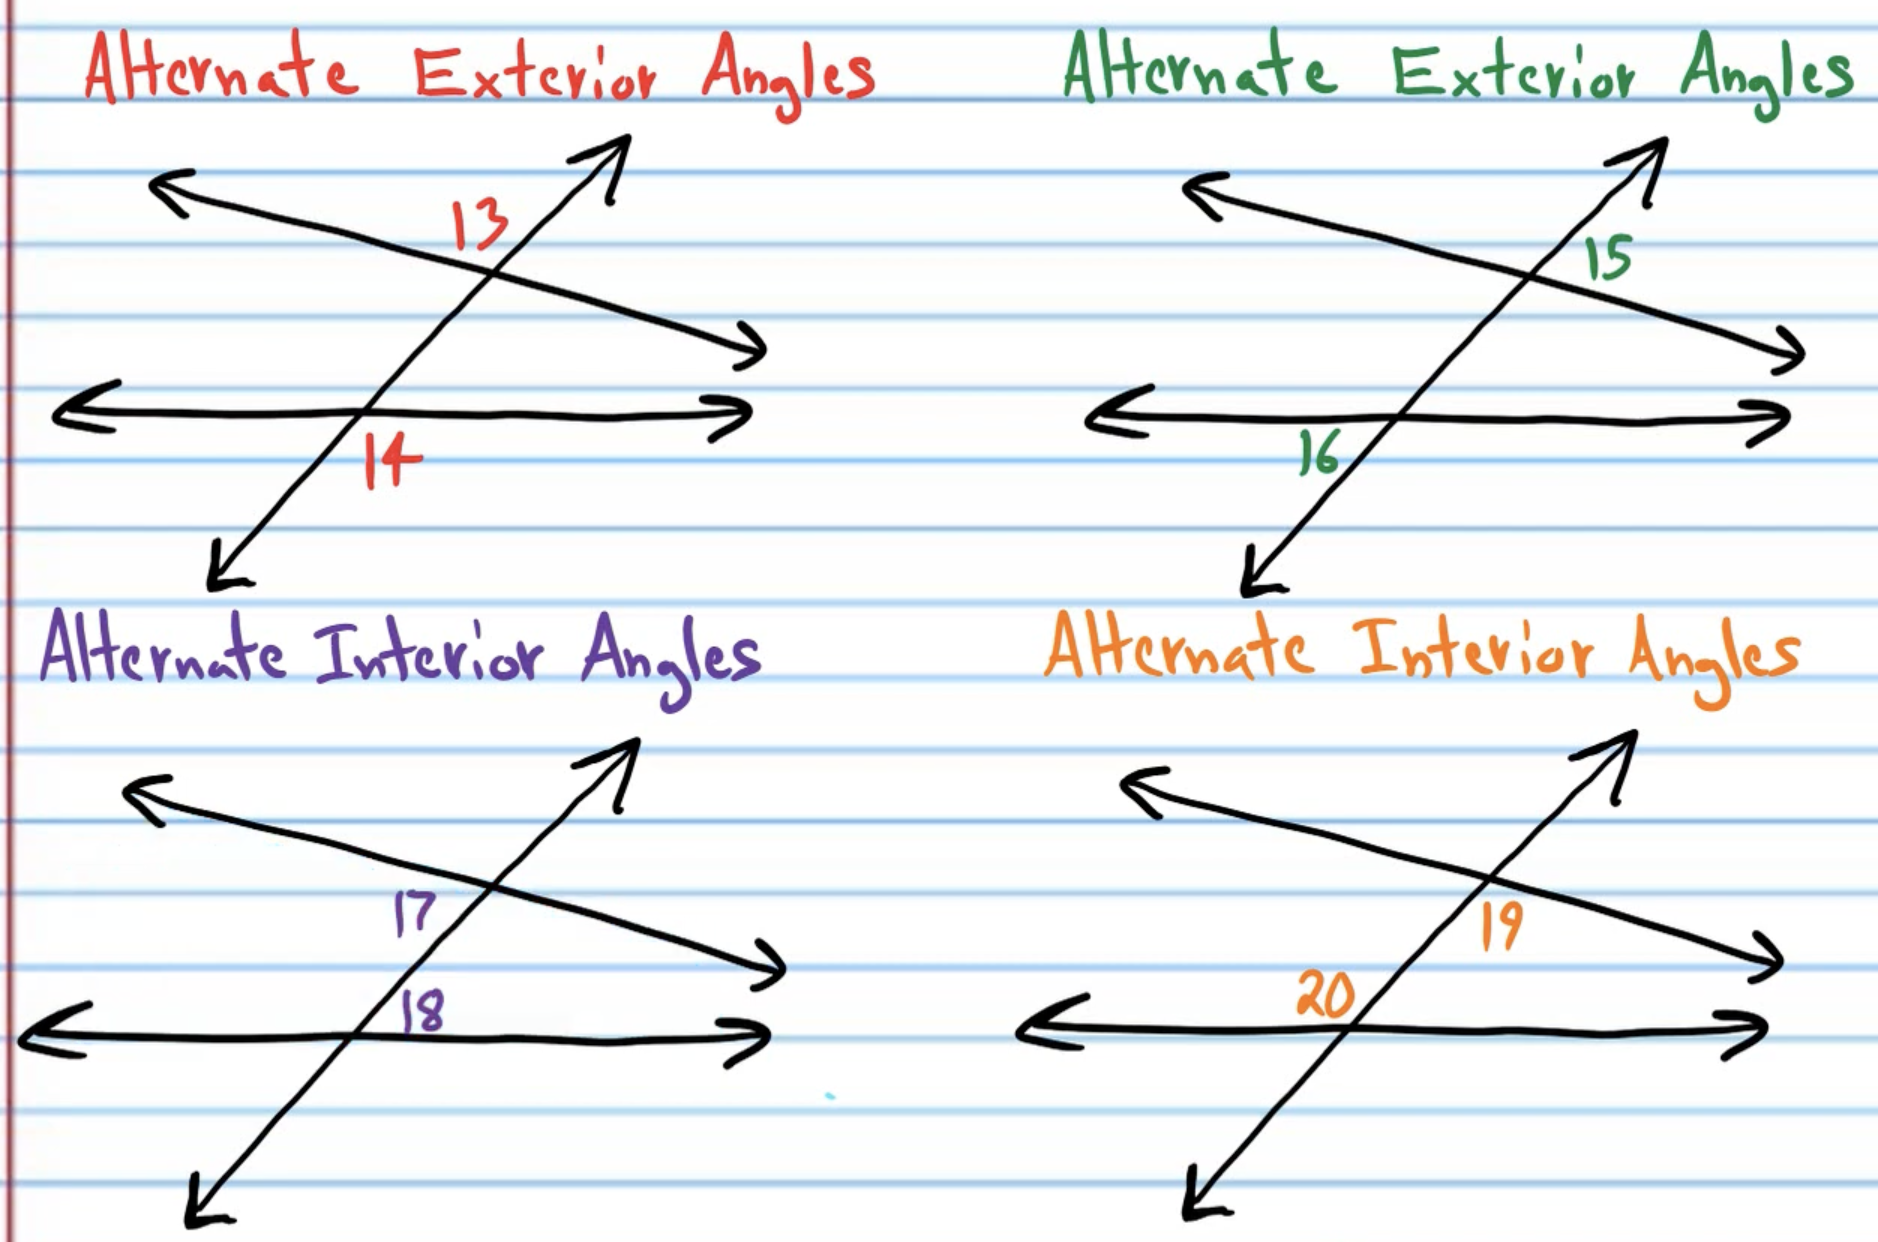 Alternate Exterior Angles
Alternate Exterior Angles
13
15
14
16
Alternate Interior Angles
Alternate Interior Angles
17
19
18
20